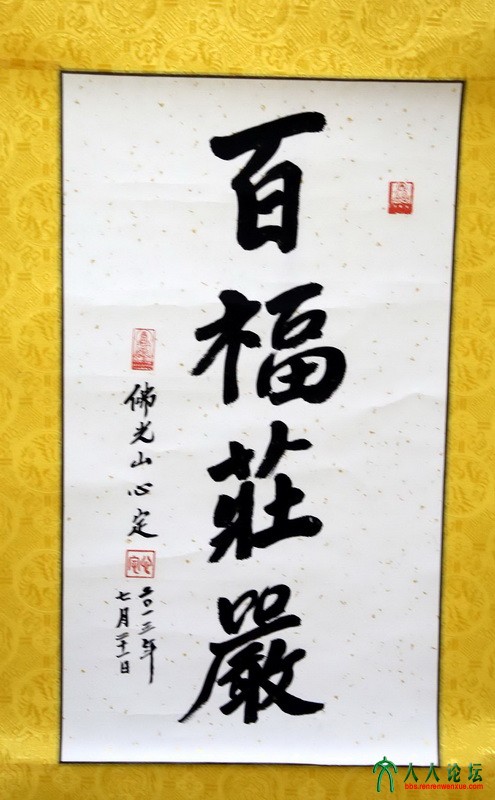 百福莊嚴
佛光山心定
二〇一三年
七月廿一日
人人论坛
bbs.renrenwenxue.com